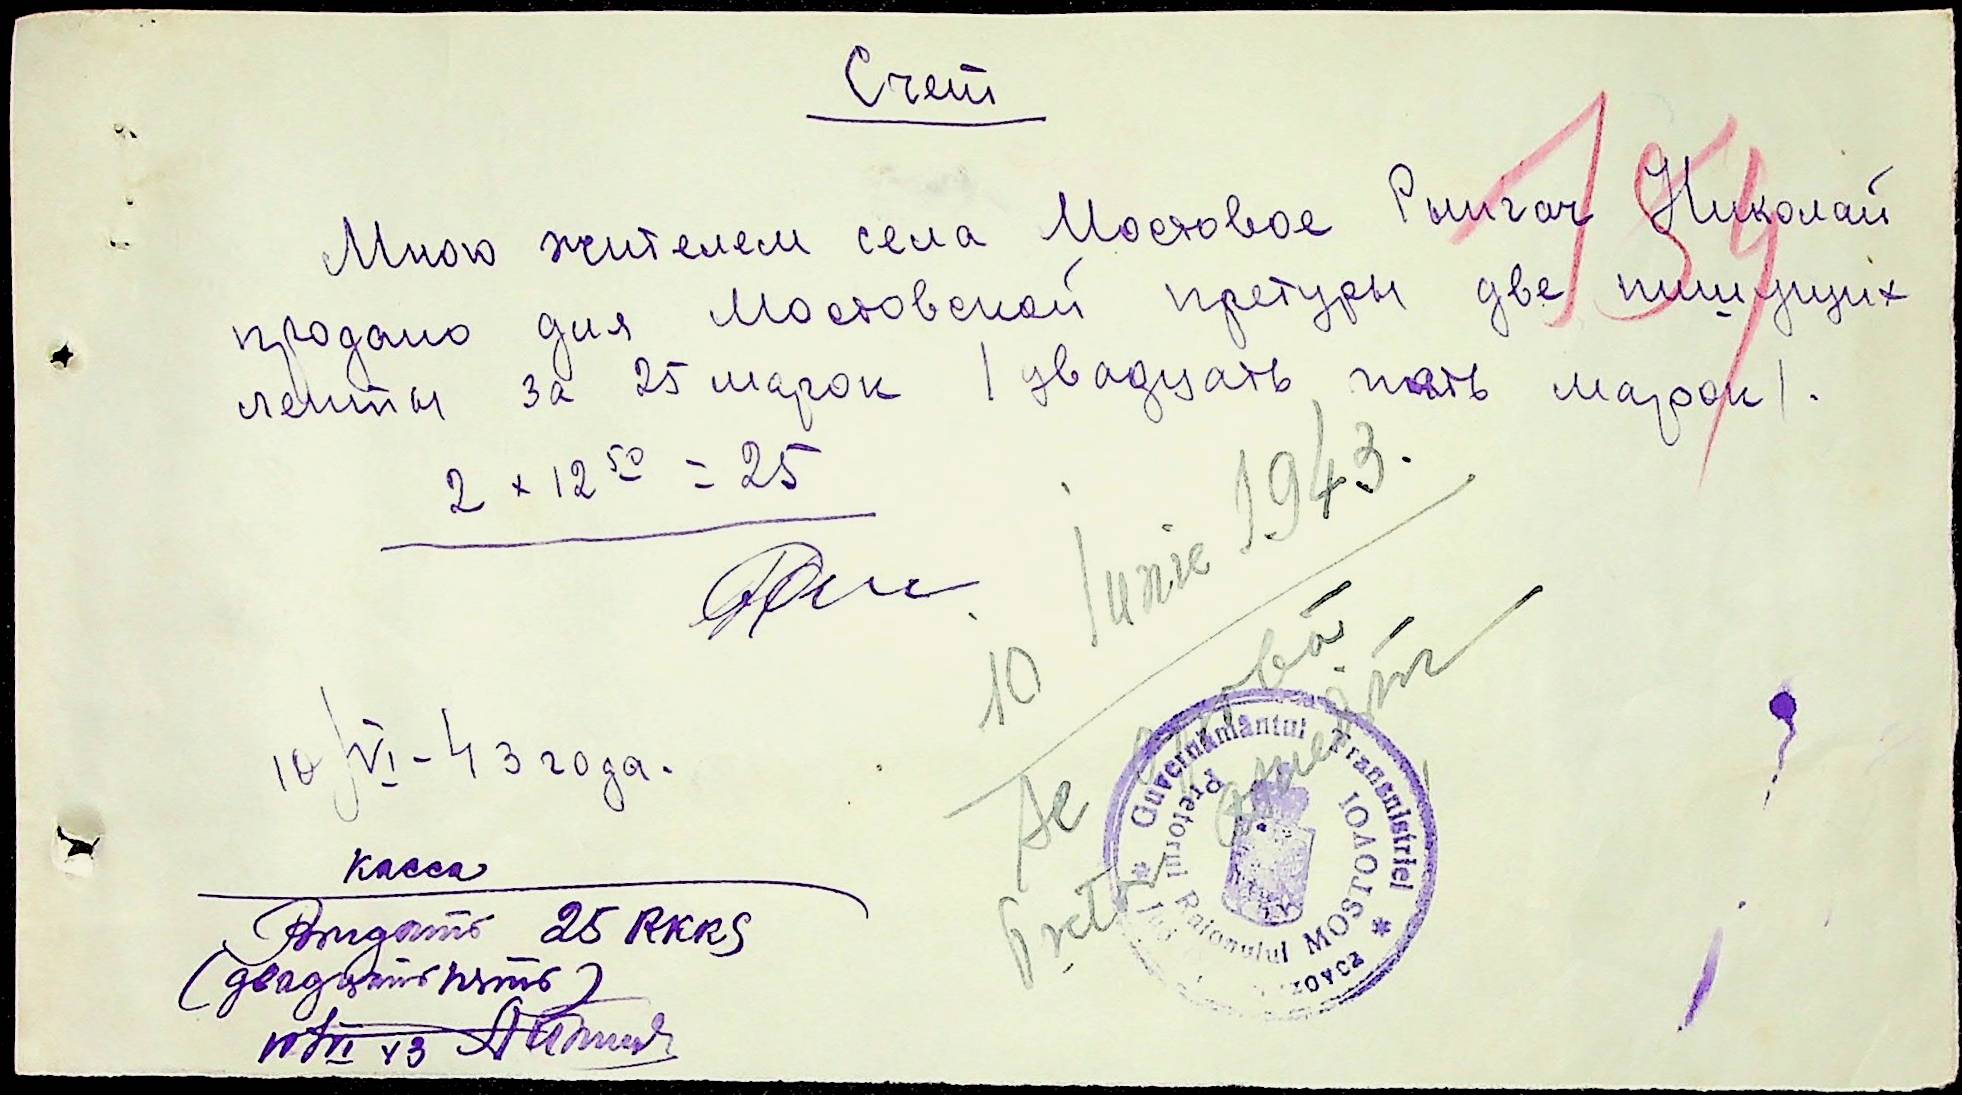 Счет
154
Мною жителем села Мостовое Николай
продано для Мостовской претуры две пишущих
ленты за 25 марок /двадцать пять марок/.
2 × 12 50 = 25
10 Iunie 1943.
Se aprobă
Pretor
10/VI-43 года.
Guvernământul Transnistriei
Pretorul Raionului MOSTOVOI
касса
Выдать 25 RKKS
(двадцать пять)
10/VI 43